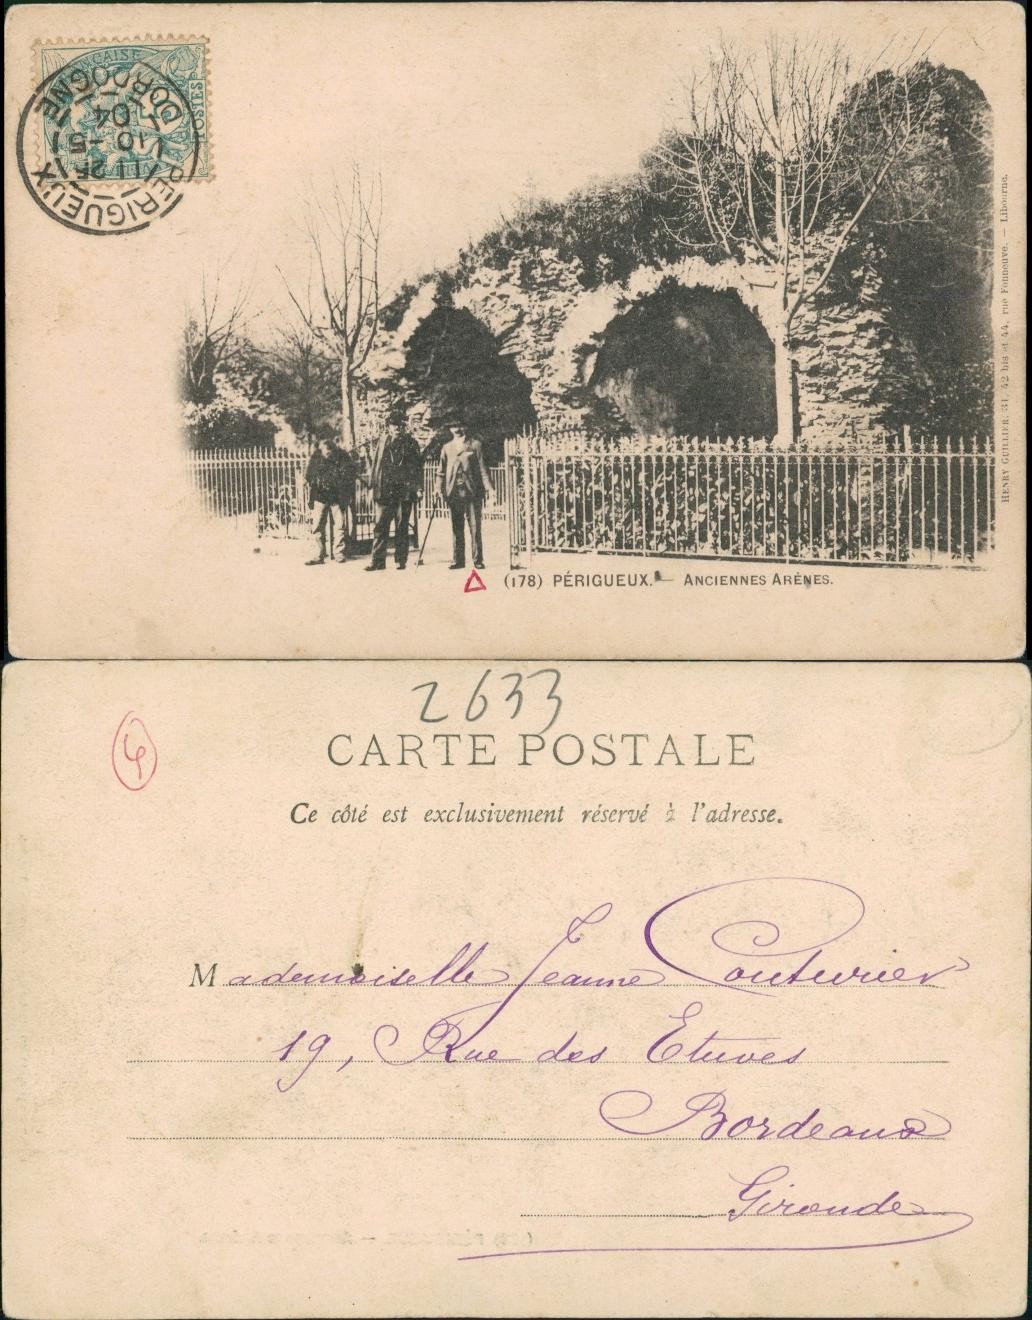 PERIGUEUX
DORDOGNE
11 25
10 -5
04
POSTES
(178) PÉRIGUEUX. — ANCIENNES ARÈNES.
HENRY GUILLIER, 31, 42 bis et 44, rue Fonneuve. — Libourne.
2633
4
CARTE POSTALE
Ce côté est exclusivement réservé à l'adresse.
Mademoiselle Jeanne Couturier
19, Rue des Etuves
Bordeaux
Gironde